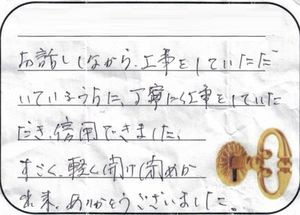 お話ししながら、工事をしていただ
いているうちに、丁寧に工事をしていた
だき、信用できました、
すごく、軽く開け閉めが
出来、ありがとうございました。